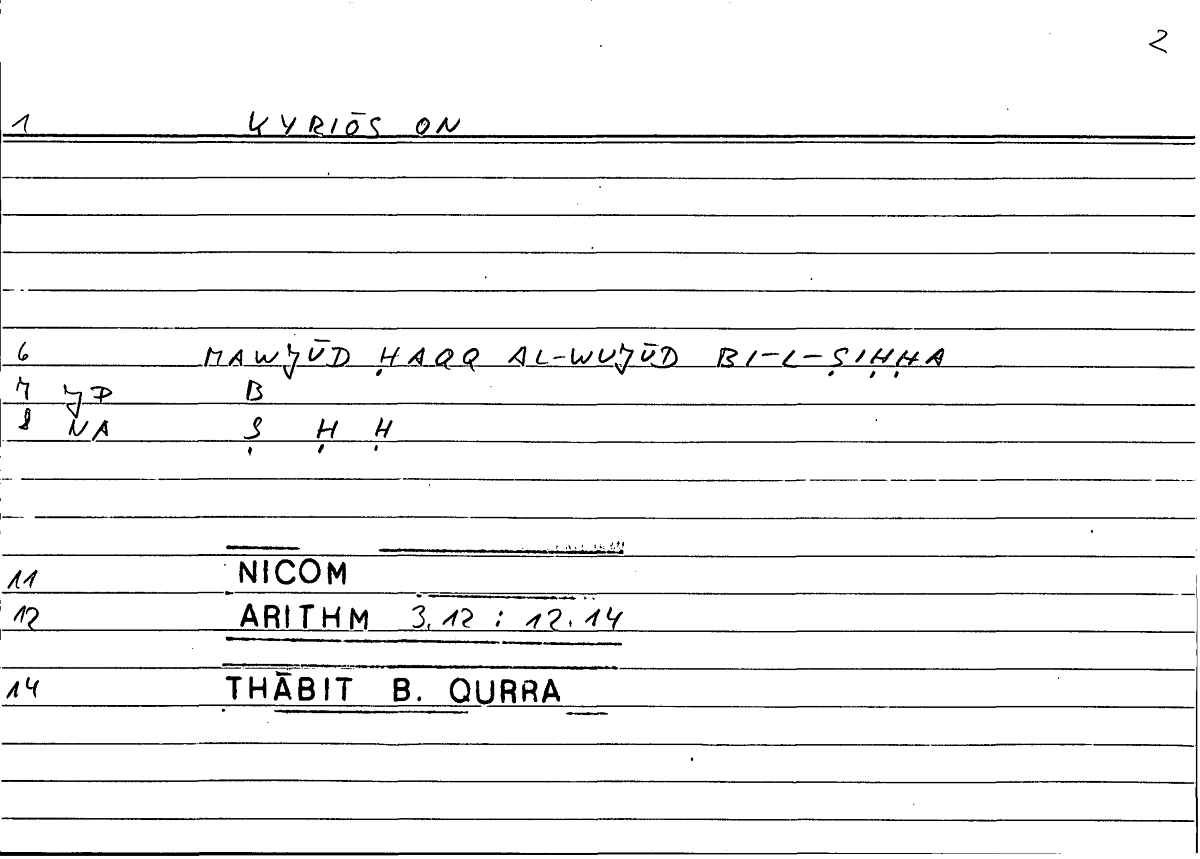 2
1 KYRIŌS ON
6 MAWJŪD ḤAQQ AL-WUJŪD BI-L-ṢIḤḤA
7 JD B
8 NA Ṣ Ḥ Ḥ
11 NICOM
12 ARITHM 3.12 : 12.14
14 THĀBIT B. QURRA